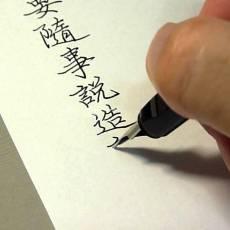 要隨事說造